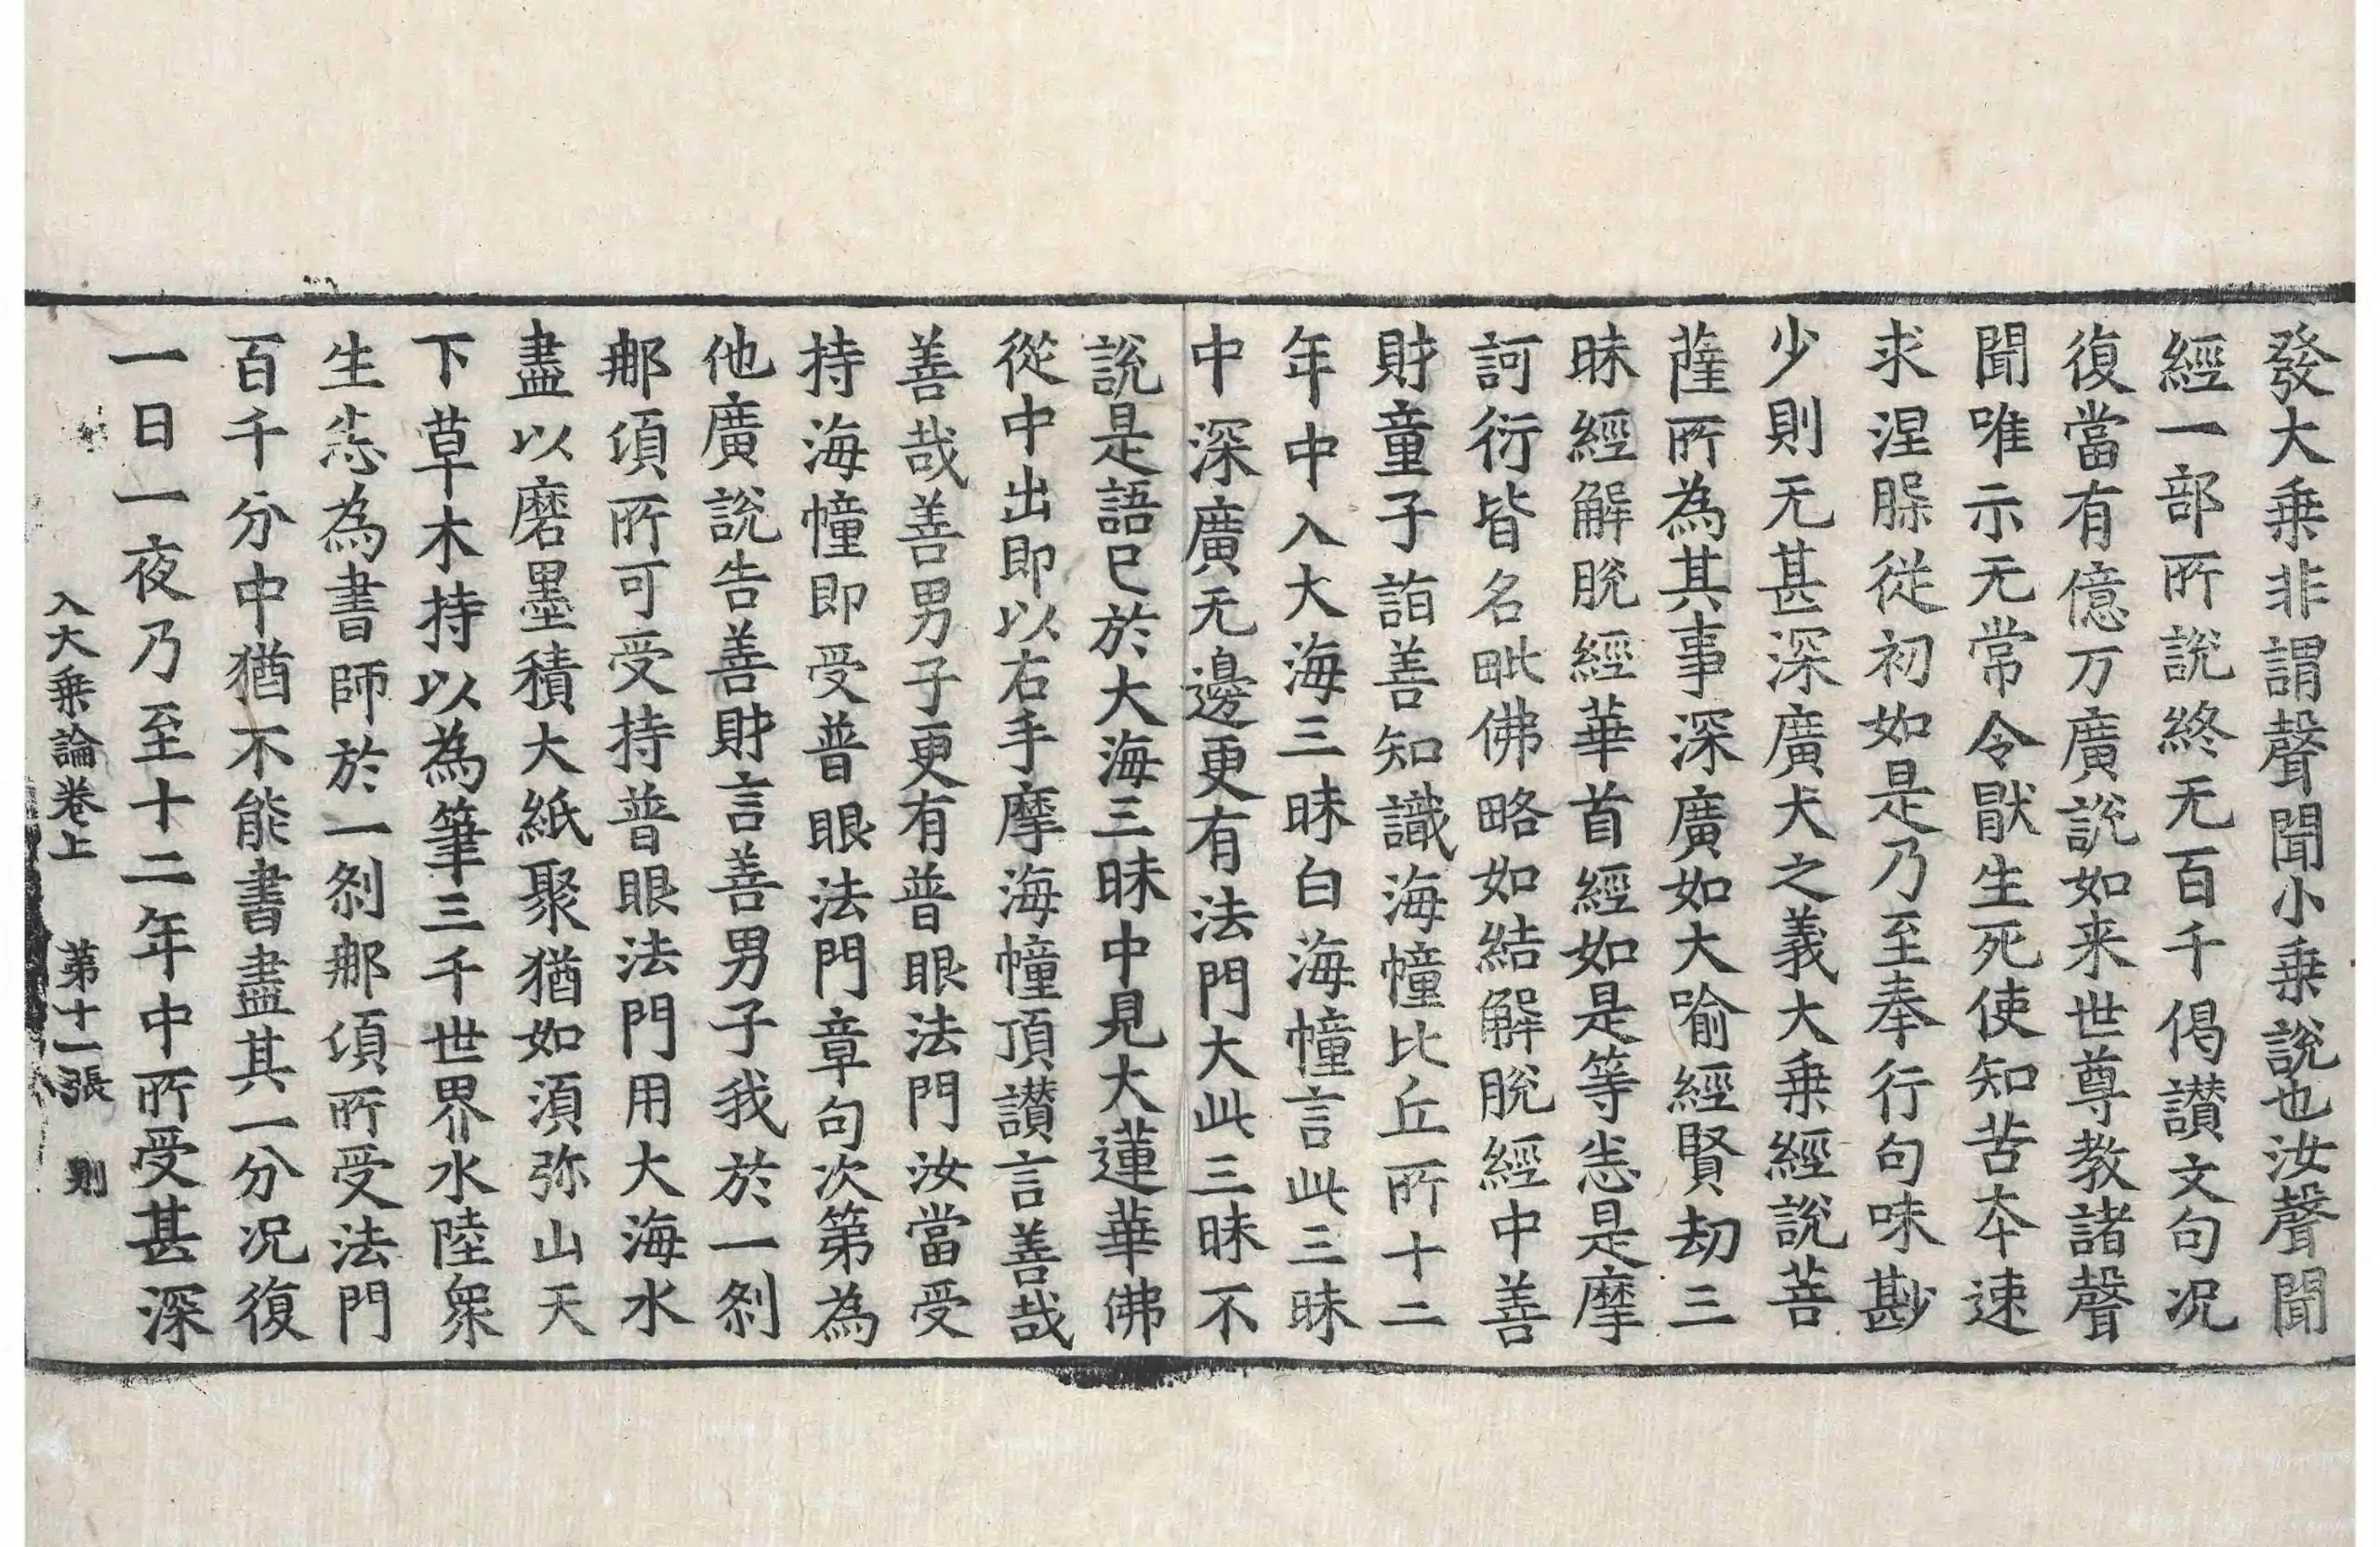 發大乘非謂聲聞小乘說也汝聲聞
經一部所說終无百千偈讃文句况
復當有億万廣說如来世尊教諸聲
聞唯示无常令猒生死使知苦夲速
求涅槃從初如是乃至奉行句味尠
少則无甚深廣大之義大乘經說菩
薩所為其事深廣如大喻經賢劫三
昧經解脫經華首經如是等悉是摩
訶衍皆名毗佛略如結解脫經中善
財童子詣善知識海幢比丘所十二
年中入大海三昧白海幢言此三昧
中深廣无邊更有法門大此三昧不
說是語已於大海三昧中見大蓮華佛
從中出即以右手摩海幢頂讃言善哉
善哉善男子更有普眼法門汝當受
持海幢即受普眼法門章句次第為
他廣說告善財言善男子我於一剎
那頃所可受持普眼法門用大海水
盡以磨墨積大紙聚猶如須弥山天
下草木持以為筆三千世界水陸衆
生悉為書師於一剎那頃所受法門
百千分中猶不能書盡其一分况復
一日一夜乃至十二年中所受甚深
入大乘論卷上 第十一張 則